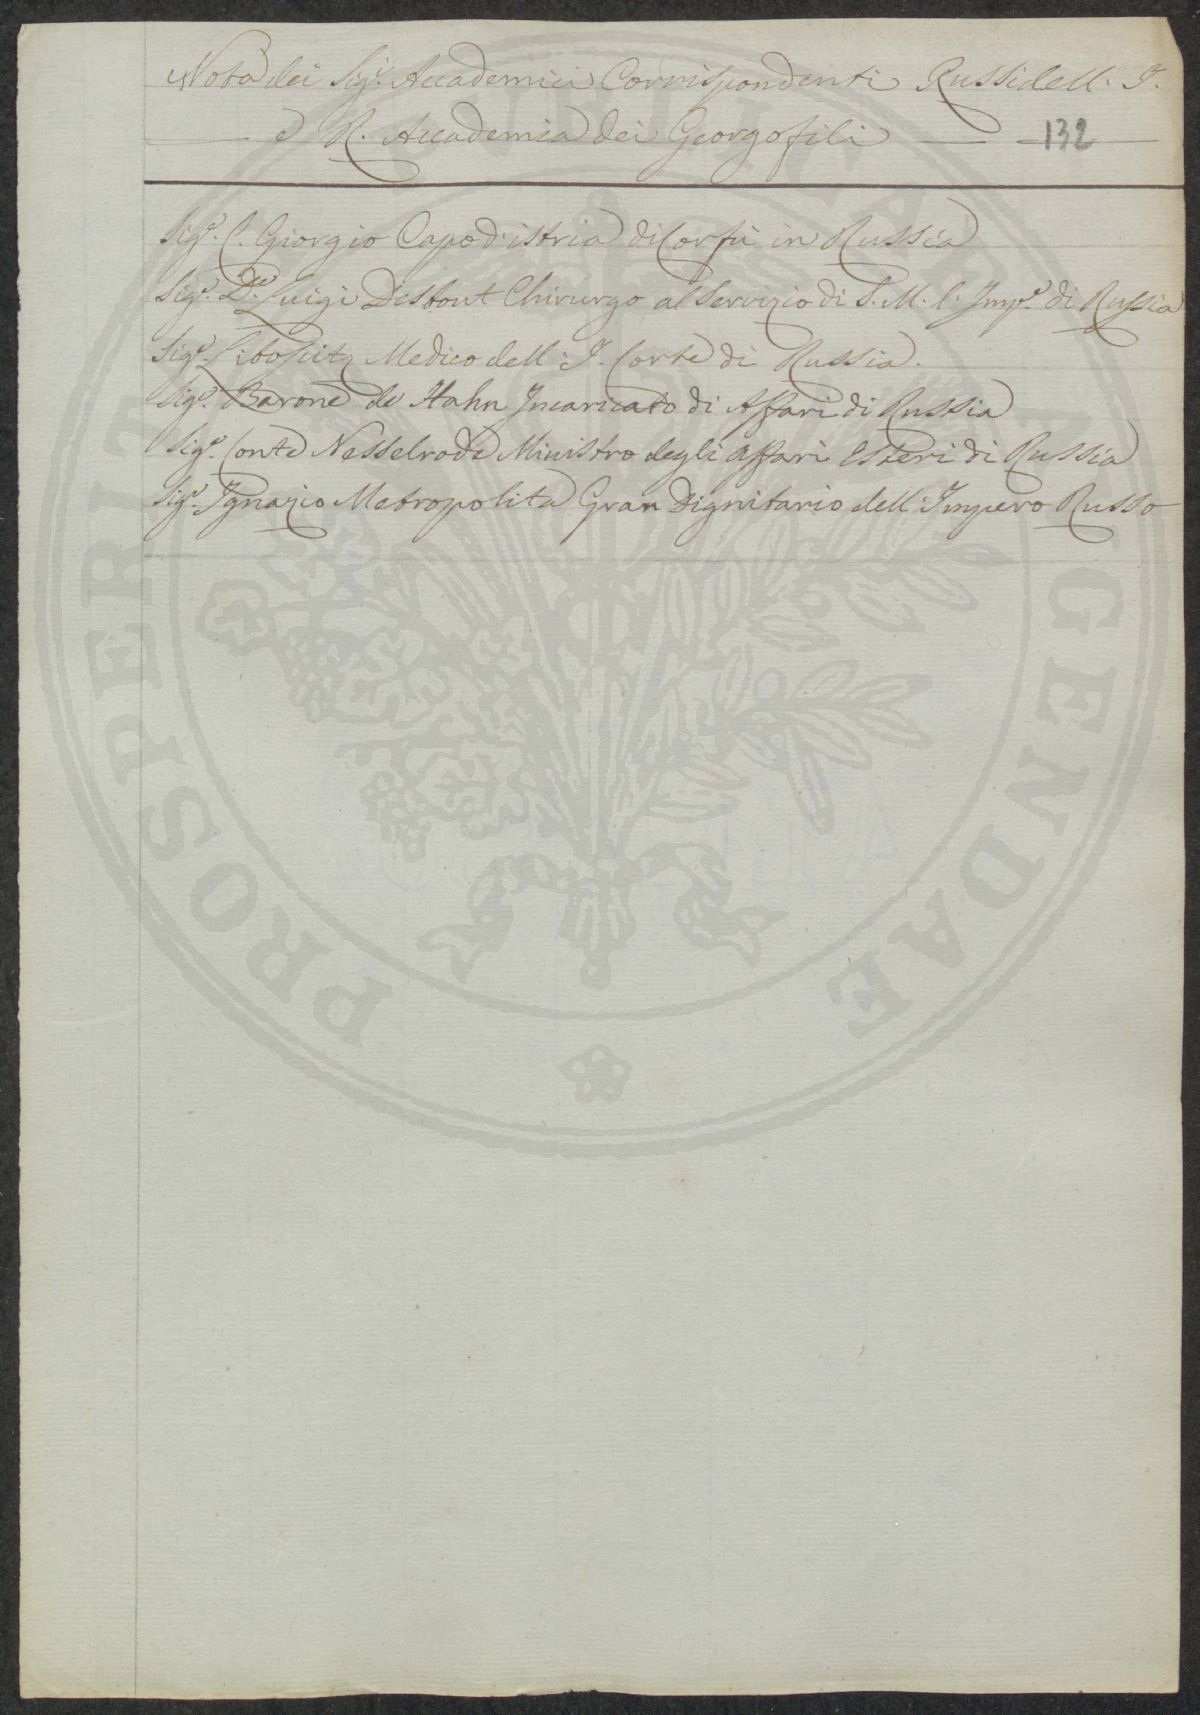 Nota dei Sig.i Accademici Corrispondenti Russi dell. I.
e R. Accademia dei Georgofili
132
Sig.e C. Giorgio Capo d'istria di Corfù in Russia
Sig.e D.re Luigi Desbout Chirurgo al Servizio di S. M. l. Imp.e di Russia
Sig.e Liboschitz Medico dell. I. Corte di Russia.
Sig.e Barone de Hahn Incaricato di Affari di Russia
Sig.e Conte Nesselrode Ministro degli Affari Esteri di Russia
Sig.e Ignazio Metropolita Gran Dignitario dell Impero Russo
PROSPERITATI PUBLICAE AUGENDAE